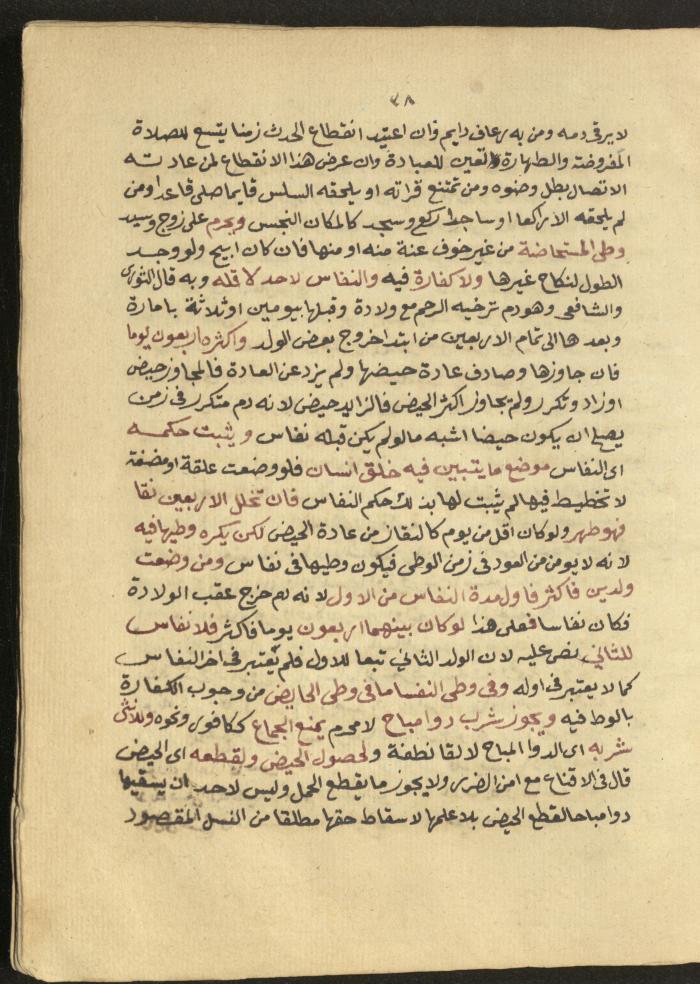 ٣٨
لا يرقى دمه ومن به رعاف دايم وان اعتيد انقطاع الحدث زمنا يتسع للصلاة
المفروضة والطهارة تعين للعبادة وان عرض هذا الانقطاع لمن عادته
الاتصال بطل وضوه ومن تمتنع قراته او يلحقه السلس قايما صلى قاعدا ومن
لم يلحقه الا راكعا او ساجدا ركع وسجد كالمكان النجس ويحرم على زوج وسيد
وطى المستحاضة من غير خوف عنة منه او منها فان كان ابيح ولو وجد
الطول لنكاح غيرها ولا كفارة فيه والنفاس لا حد لاقله وبه قال الثورى
والشافعى وهو دم ترخيه الرحم مع ولادة وقبلها بيومين او ثلاثة بامارة
وبعدها الى تمام الاربعين من ابتدا خروج بعض الولد واكثره اربعون يوما
فان جاوزها وصادف عادة حيضها ولم يزد عن العادة فالمجاوز حيض
او زاد وتكرر ولم يجاوز اكثر الحيض فالزايد حيض لانه دم متكرر فى زمن
يصلح ان يكون حيضا اشبه ما لو لم يكن قبله نفاس ويثبت حكمه
اى النفاس موضع ما يتبين فيه خلق انسان فلو وضعت علقة او مضغة
لا تخطيط فيها لم يثبت لها بذلك حكم النفاس فان تخلل الاربعين نقا
فهو طهر ولو كان اقل من يوم كالنقا زمن عادة الحيض لكن يكره وطيها فيه
لانه لا يومن من العود فى زمن الوطى فيكون وطيها فى نفاس ومن وضعت
ولدين فاكثر فاول مدة النفاس من الاول لانه دم خرج عقب الولادة
فكان نفاسا فعلى هذا لو كان بينهما اربعون يوما فاكثر فلا نفاس
للثانى نص عليه لان الولد الثانى تبعا للاول فلم يعتبر فى اخر النفاس
كما لا يعتبر فى اوله وفى وطى النفسا ما فى وطى الحايض من وجوب الكفارة
بالوطء فيه ويجوز شرب دوا مباح لا محرم يمنع الجماع ككافور ونحوه وللانثى
شربه اى الدوا المباح لالقا نطفة ولحصول الحيض ولقطعه اى الحيض
قال فى الاقناع مع امن الضرر ولا يجوز ما يقطع الحمل وليس لاحد ان يسقيها
دوا مباحا لقطع الحيض بلا علمها لاسقاط حقها مطلقا من النسل المقصود